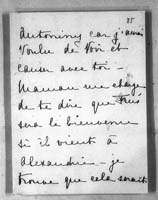 25
Antonius car j'aurai
voulu te voir et
causer avec toi -
Maman me charge
de te dire que
sera le bienvenu
si il vient à
Alexandrie - je
trouve que cela serait